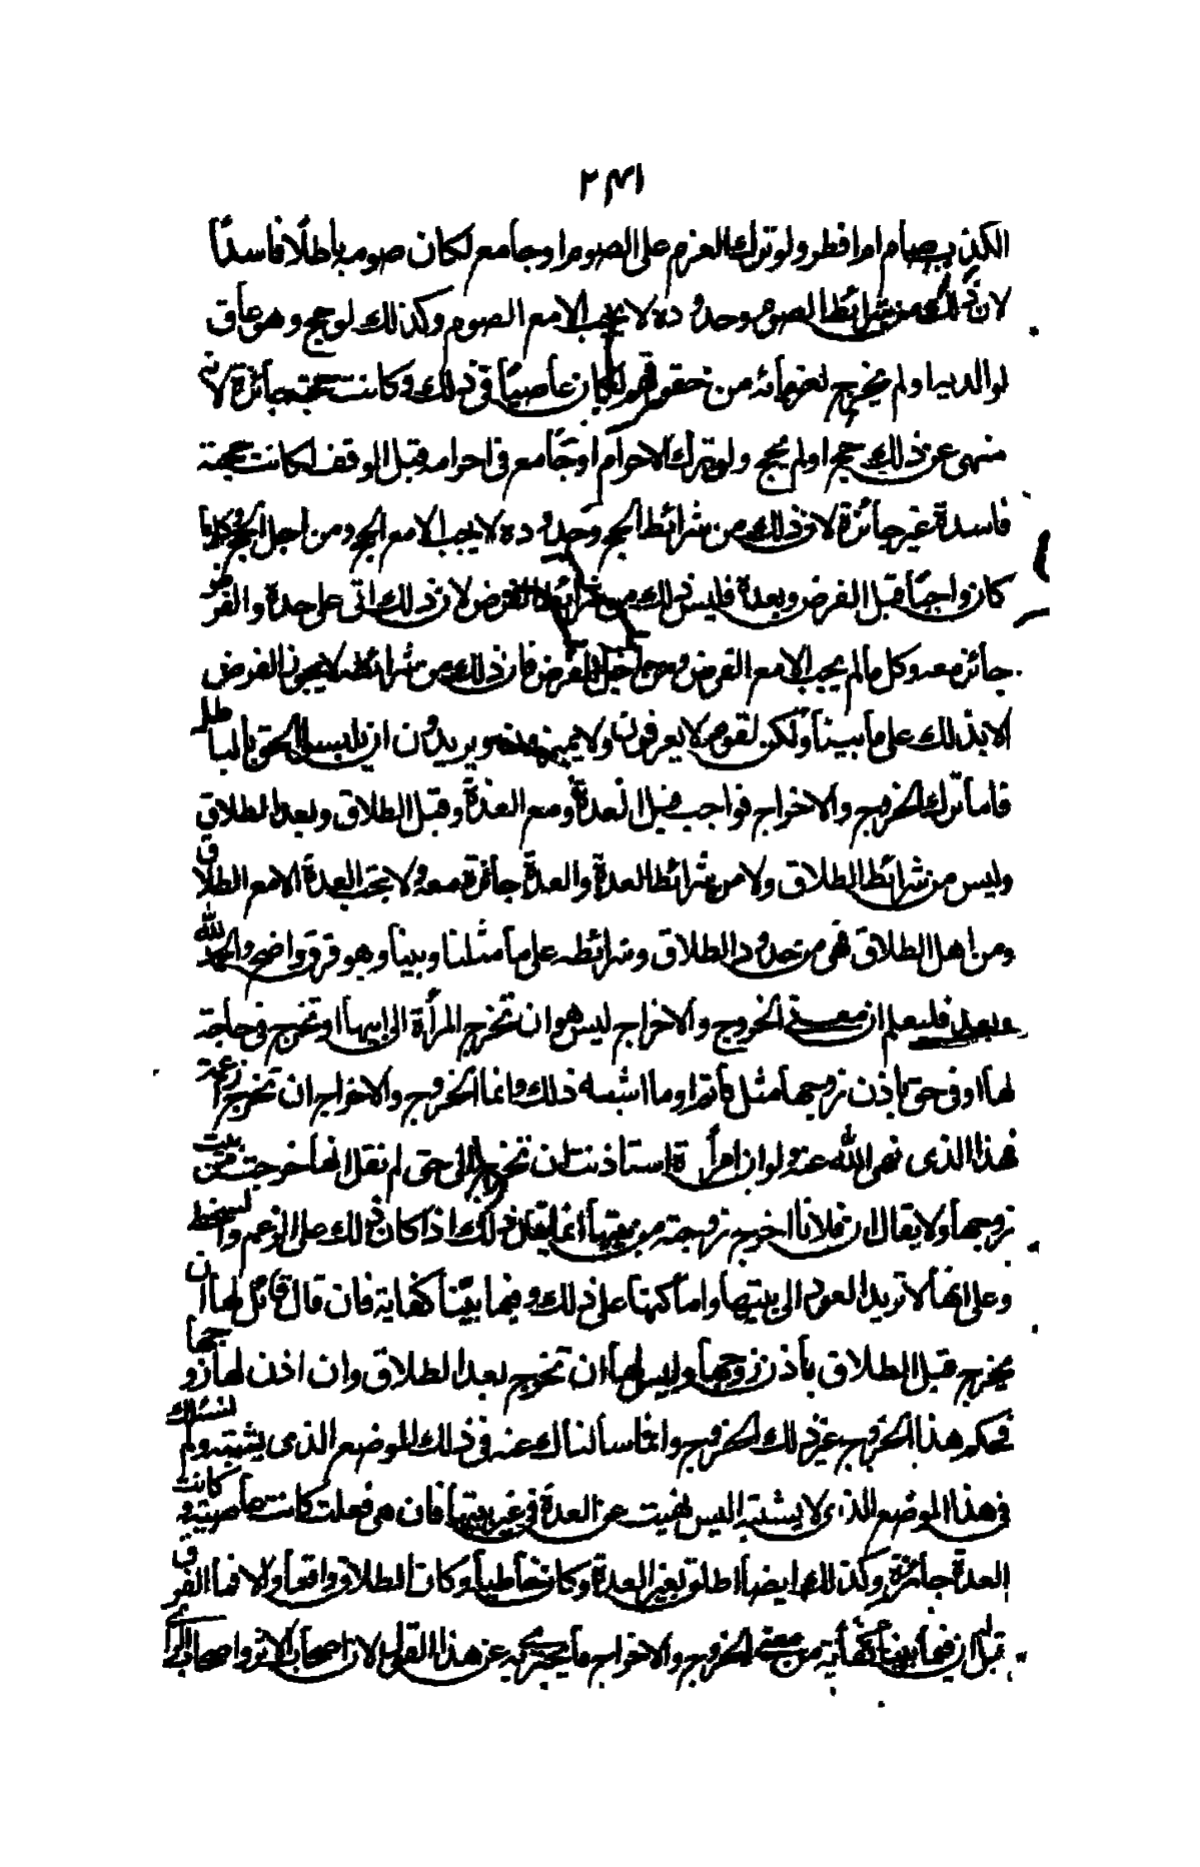 ٢٤١
الكذب بصيام ام افطر ولو ترك العزم على الصوم او جامع لكان صومه باطلًا فاسدًا
لان ذلك من شرائط الصوم وحدوده لا يجب الا مع الصوم وكذلك لو حج وهو عاق
لوالديه او لم يخرج لغرمائه من حقوقهم لكان عاصيًا في ذلك وكانت حجته جائزة لانه
منهى عن ذلك حج او لم يحج ولو ترك الاحرام او جامع فى احرامه قبل الوقف لكانت حجته
فاسدة غير جائزة لان ذلك من شرائط الحج وحدوده لا يجب الا مع الحج ومن اجل الحج فكلما
كان واجبًا قبل الفرض وبعده فليس ذلك من شرائط الفرض لان ذلك اتى على حدة والفرض
جائز معه وكل مالم يجب الا مع الفرض ومن اجل الفرض فان ذلك من شرائطه لا يجوز الفرض
الا بذلك على ما بيناه ولكن لقوم لا يعرفون ولا يميزون ويريدون ان يلبسوا الحق بالباطل
فاما ترك الخروج والاخراج فواجب قبل العدة ومع العدة وقبل الطلاق وبعد الطلاق
وليس من شرائط الطلاق ولا من شرائط العدة والعدة جائزة معه ولا تجب العدة الا مع الطلاق
ومن اهل الطلاق فهى من حدود الطلاق وشرائطه على ما مثلنا وبينا وهو فرق واضح والحمد لله
وبعد فليعلم ان معنى الخروج والاخراج ليس هو ان تخرج المرأة الى ابيها او تخرج فى حاجة
لها او فى حق باذن زوجها مثل ماتم او ما اشبه ذلك وانما الخروج والاخراج ان تخرج مراغمة
فهذا الذى نهى الله عنه ولو ان امرأة استاذنت ان تخرج الى حق لم نقل انها خرجت من بيت
زوجها ولا يقال ان فلانا اخرج زوجته من بيتها انما يقال ذلك اذا كان ذلك على الرغم والسخط
وعلى انها لا تريد العود الى بيتها وامساكها على ذلك وفيما بيّنا كفاية فان قال قائل لها ان
يخرج قبل الطلاق باذن زوجها وليس لها ان تخرج بعد الطلاق وان اذن لها زوجها
فحكم هذا الخروج غير ذلك الخروج وانما سالناك عنه فى ذلك الموضع الذى يشتبه ولم نسئلك
فى هذا الموضع الذى لا يشتبه اليس نهيت عن العدة فى غير بيتها فان هى فعلت كانت عاصية وكانت
العدة جائزة وكذلك ايضًا اطلق لغير العدة وكان خاطيًا وكان الطلاق واقعًا والا فما الفرق
قيل له ان فيما بينا كفاية من معنى الخروج والاخراج ما يجتزى به عن هذا القول لان اصحاب الاثر واصحاب الراى